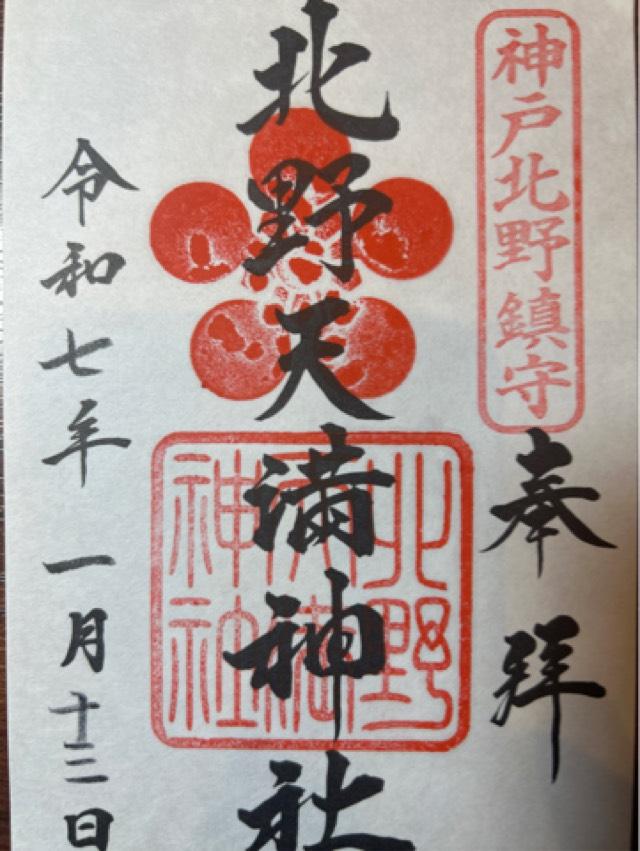 神戸北野鎮守
奉拝
北野天満神社
北野
神社
令和七年一月十二日